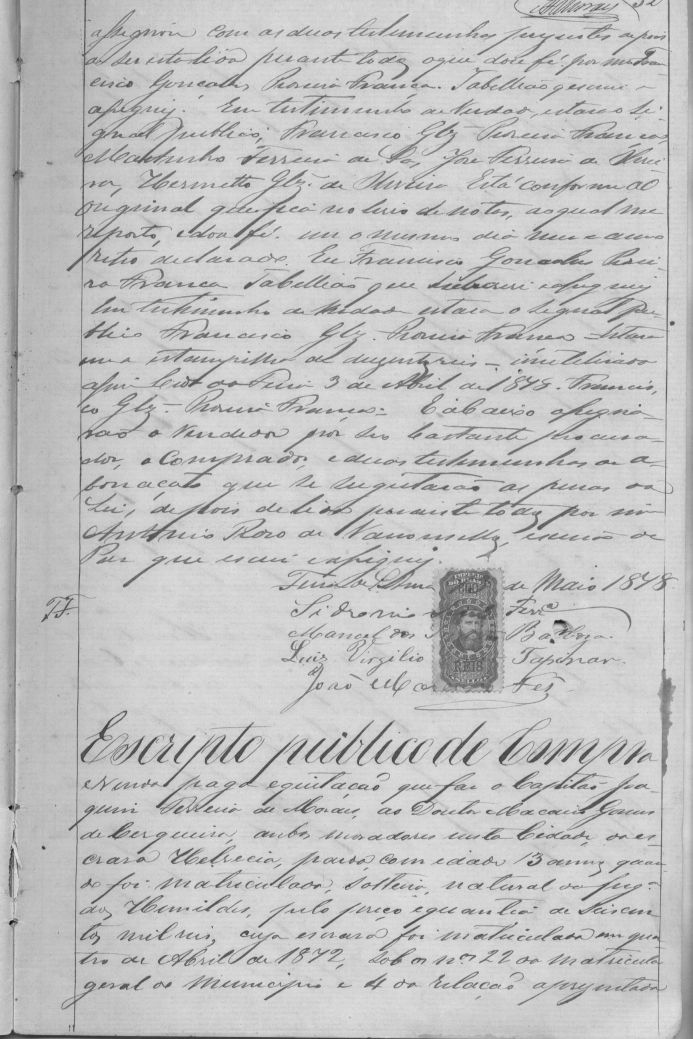 assignão com as duas testemunhas presentes apois
de ser esta lida perante todos, o que dou fé. por mim Fran
cisco Gonçalves Pereira Franca. Tabellião q escrevi e
assignei. Em testimunho de verdade, estava o Si
gnal publico, Francisco Glz Pereira Franca,
Martinho Ferreira de Sá, José Ferreira de Olivei
ra, Hermetto Glz. de Oliveira Está conforme ao
original, que fica no livro de notas, ao qual me
reporto, e dou fé. em o mesmo dia mez e anno
retro declarado. Eu Francisco Gonçalves Perei
ra Franca Tabellião que subscrevi e assignei
Em testimunho de verdade estava o signal pu
blico Francisco Glz. Pereira Franca. Estava
uma estampilha de duzentos reis - inutilisada
assim Cid.e da Feira 3 de Abril de 1878. Francis
co Glz. Pereira Franca. E abaixo assigna
rão o Vendedor por seu bastante procura
dor, o Comprador, e duas testimunhas de a
bonação que se sugeitarão as penas da
Lei, depois de lida perante todos por mim
Antonio Rozo de escrivão de
Paz que escrevi e assignei.
Feira de S. Anna de Maio 1878
Sidronio Ferr.a
Manoel dos Barboza
Luiz Virgilio
João Fez.
T.F.
IMPERIO DO BRASIL
REIS
Escripto publico de Compra
e Venda paga e quitação que faz o Capitão Joa
quim Ferreira de Moraes, ao Doutor Macario Gomes
de Cerqueira, ambos moradores nesta Cidade, da es
crava Helrecia, parda, com idade 13 annos quan
do foi matriculada, solteira, natural da freg.a
dos Humildes, pelo preço e quantia de Seiscen
tos mil reis, cuja escrava foi matriculada em qua
tro de Abril de 1872, sob os nos 22 da matricula
geral do Municipio e 4 da relação apresentada